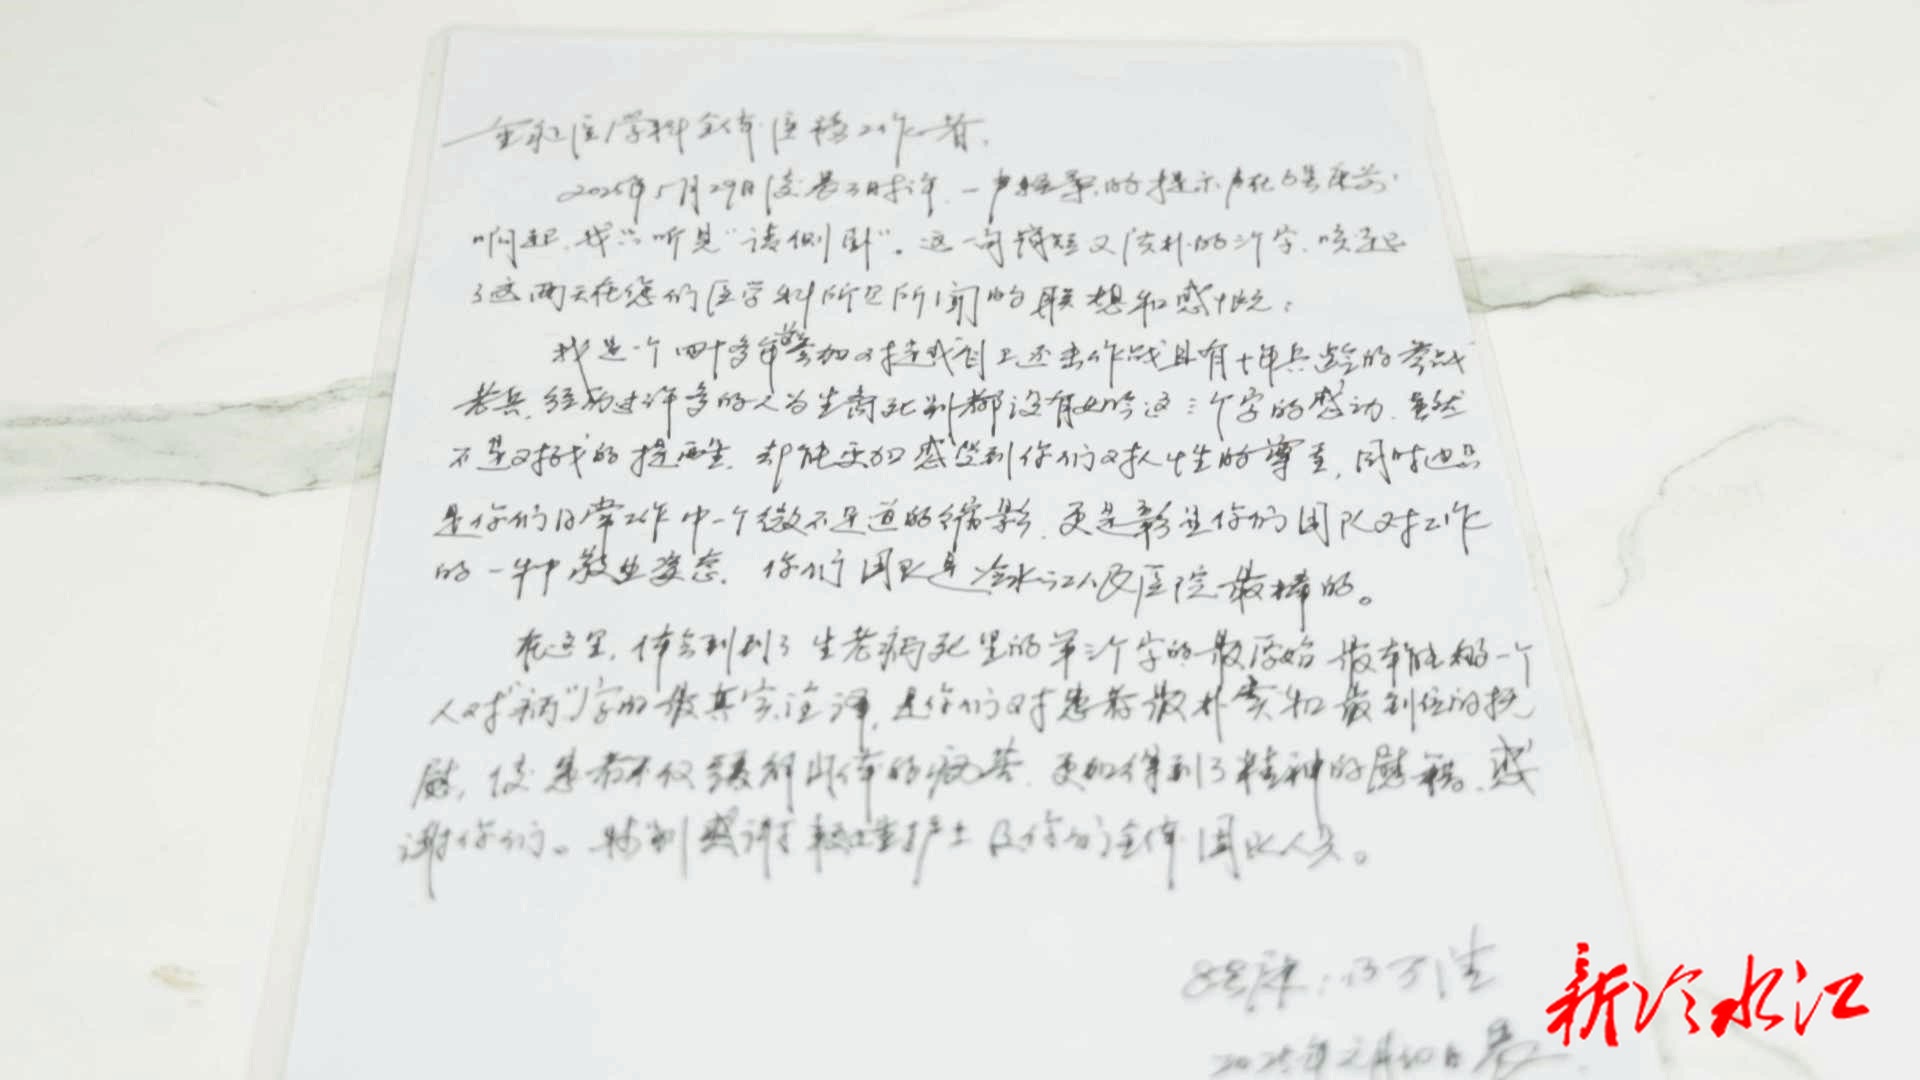 全科医学科全体医务工作者，
2025年5月29日凌晨3时许，一声轻柔的提示声在68号床前
响起，我只听见“请侧卧”。这一句简短又淳朴的三个字，唤起
了这两天在您们医学科所见所闻的联想和感慨：
我是一个四十多年参加对越自卫还击作战且有十年兵龄的参战
老兵，经历过许多的人为生离死别都没有如今这三个字的感动，虽然
不是对我的提醒，却能更加感受到你们对人性的尊重，同时也只
是你们日常工作中一个微不足道的缩影，更是彰显你们团队对工作
的一种敬业姿态，你们团队是冷水江人民医院最棒的。
在这里，体会到到了生老病死里的第三个字的最原始最本能的一个
人对“病”字的最真实注译，是你们对患者最朴实和最到位的抚
慰，使患者不仅缓解身体的病苦，更加得到了精神的慰藉，感
谢你们。特别感谢 护士及你们全体团队人员。
68床：
2025年 月30日晨
新冷水江